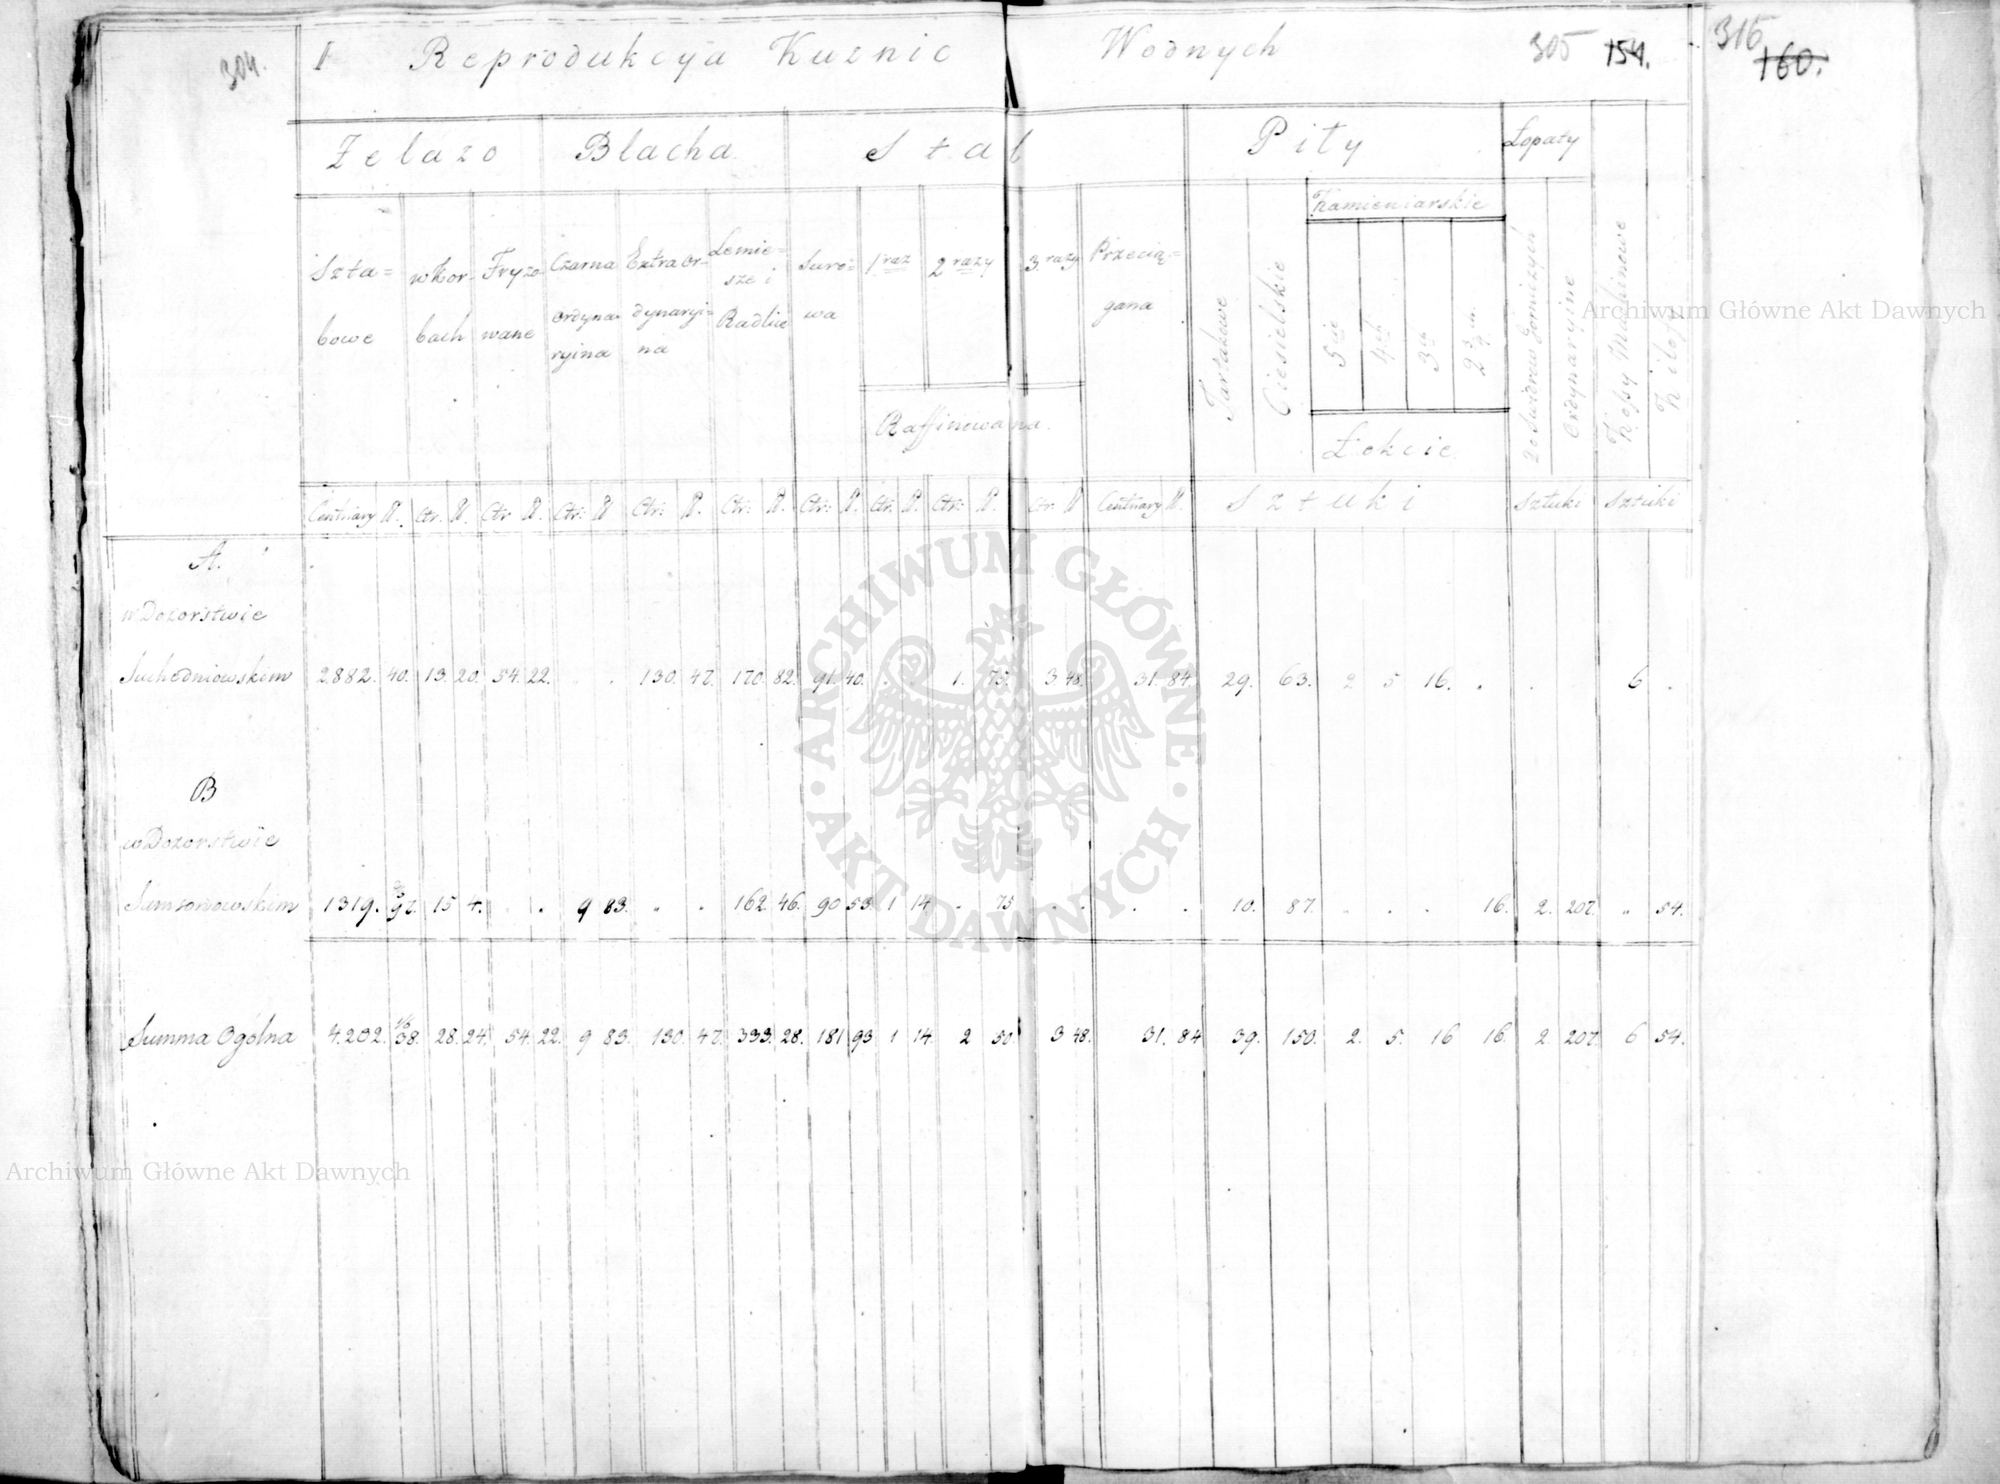 304.
I Reprodukcya Kuznic Wodnych 305 154. 316
160.
Zelazo Blacha Stal Piły Łopaty
Kamieniarskie
Szta= w Kor- Fryzo- Czarna Extraor- Lemie= Suro= 1 raz 2 razy 3. razy Przecią=
sze i
bowe bach wane ordyna- dynaryi= Radlice wa gana
ryina na
Tartakowe Ciesielskie 5cio 4ch 3ch 2 3/4 Ordynaryine Kossy Machinowe
Raffinowana.
Łokcie
Centnary ℔. Ctr. ℔. Ctr ℔. Ctr: ℔ Ctr: ℔. Ctr: ℔. Ctr: ℔. Ctr. ℔. Ctr: ℔. Ctr. ℔ Centnary ℔. Sztuki Sztuki Sztuki
A.
w Dozorstwie
Suchedniowskim 2.882. 40. 13. 20. 54. 22. . . 130. 47. 170. 82. 91. 40. . . 1. 75. 3. 48. 31. 84. 29. 63. 2 5 16. . . . 6 .
B
w Dozorstwie
Samsonowskim 1319. 97. 15 4. . . 9 83. . . 162. 46. 90 53. 1 14 . 75 . . . . 10. 87. . . . 16. 2. 207. „ 54.
Summa Ogólna 4.202. 38. 28. 24. 54. 22. 9 83. 130. 47. 333. 28. 181 93 1 14. 2 50. 3 48. 31. 84 39. 150. 2. 5. 16 16. 2. 207. 6 54.
Archiwum Główne Akt Dawnych
Archiwum Główne Akt Dawnych
ARCHIWUM GŁÓWNE · AKT DAWNYCH ·